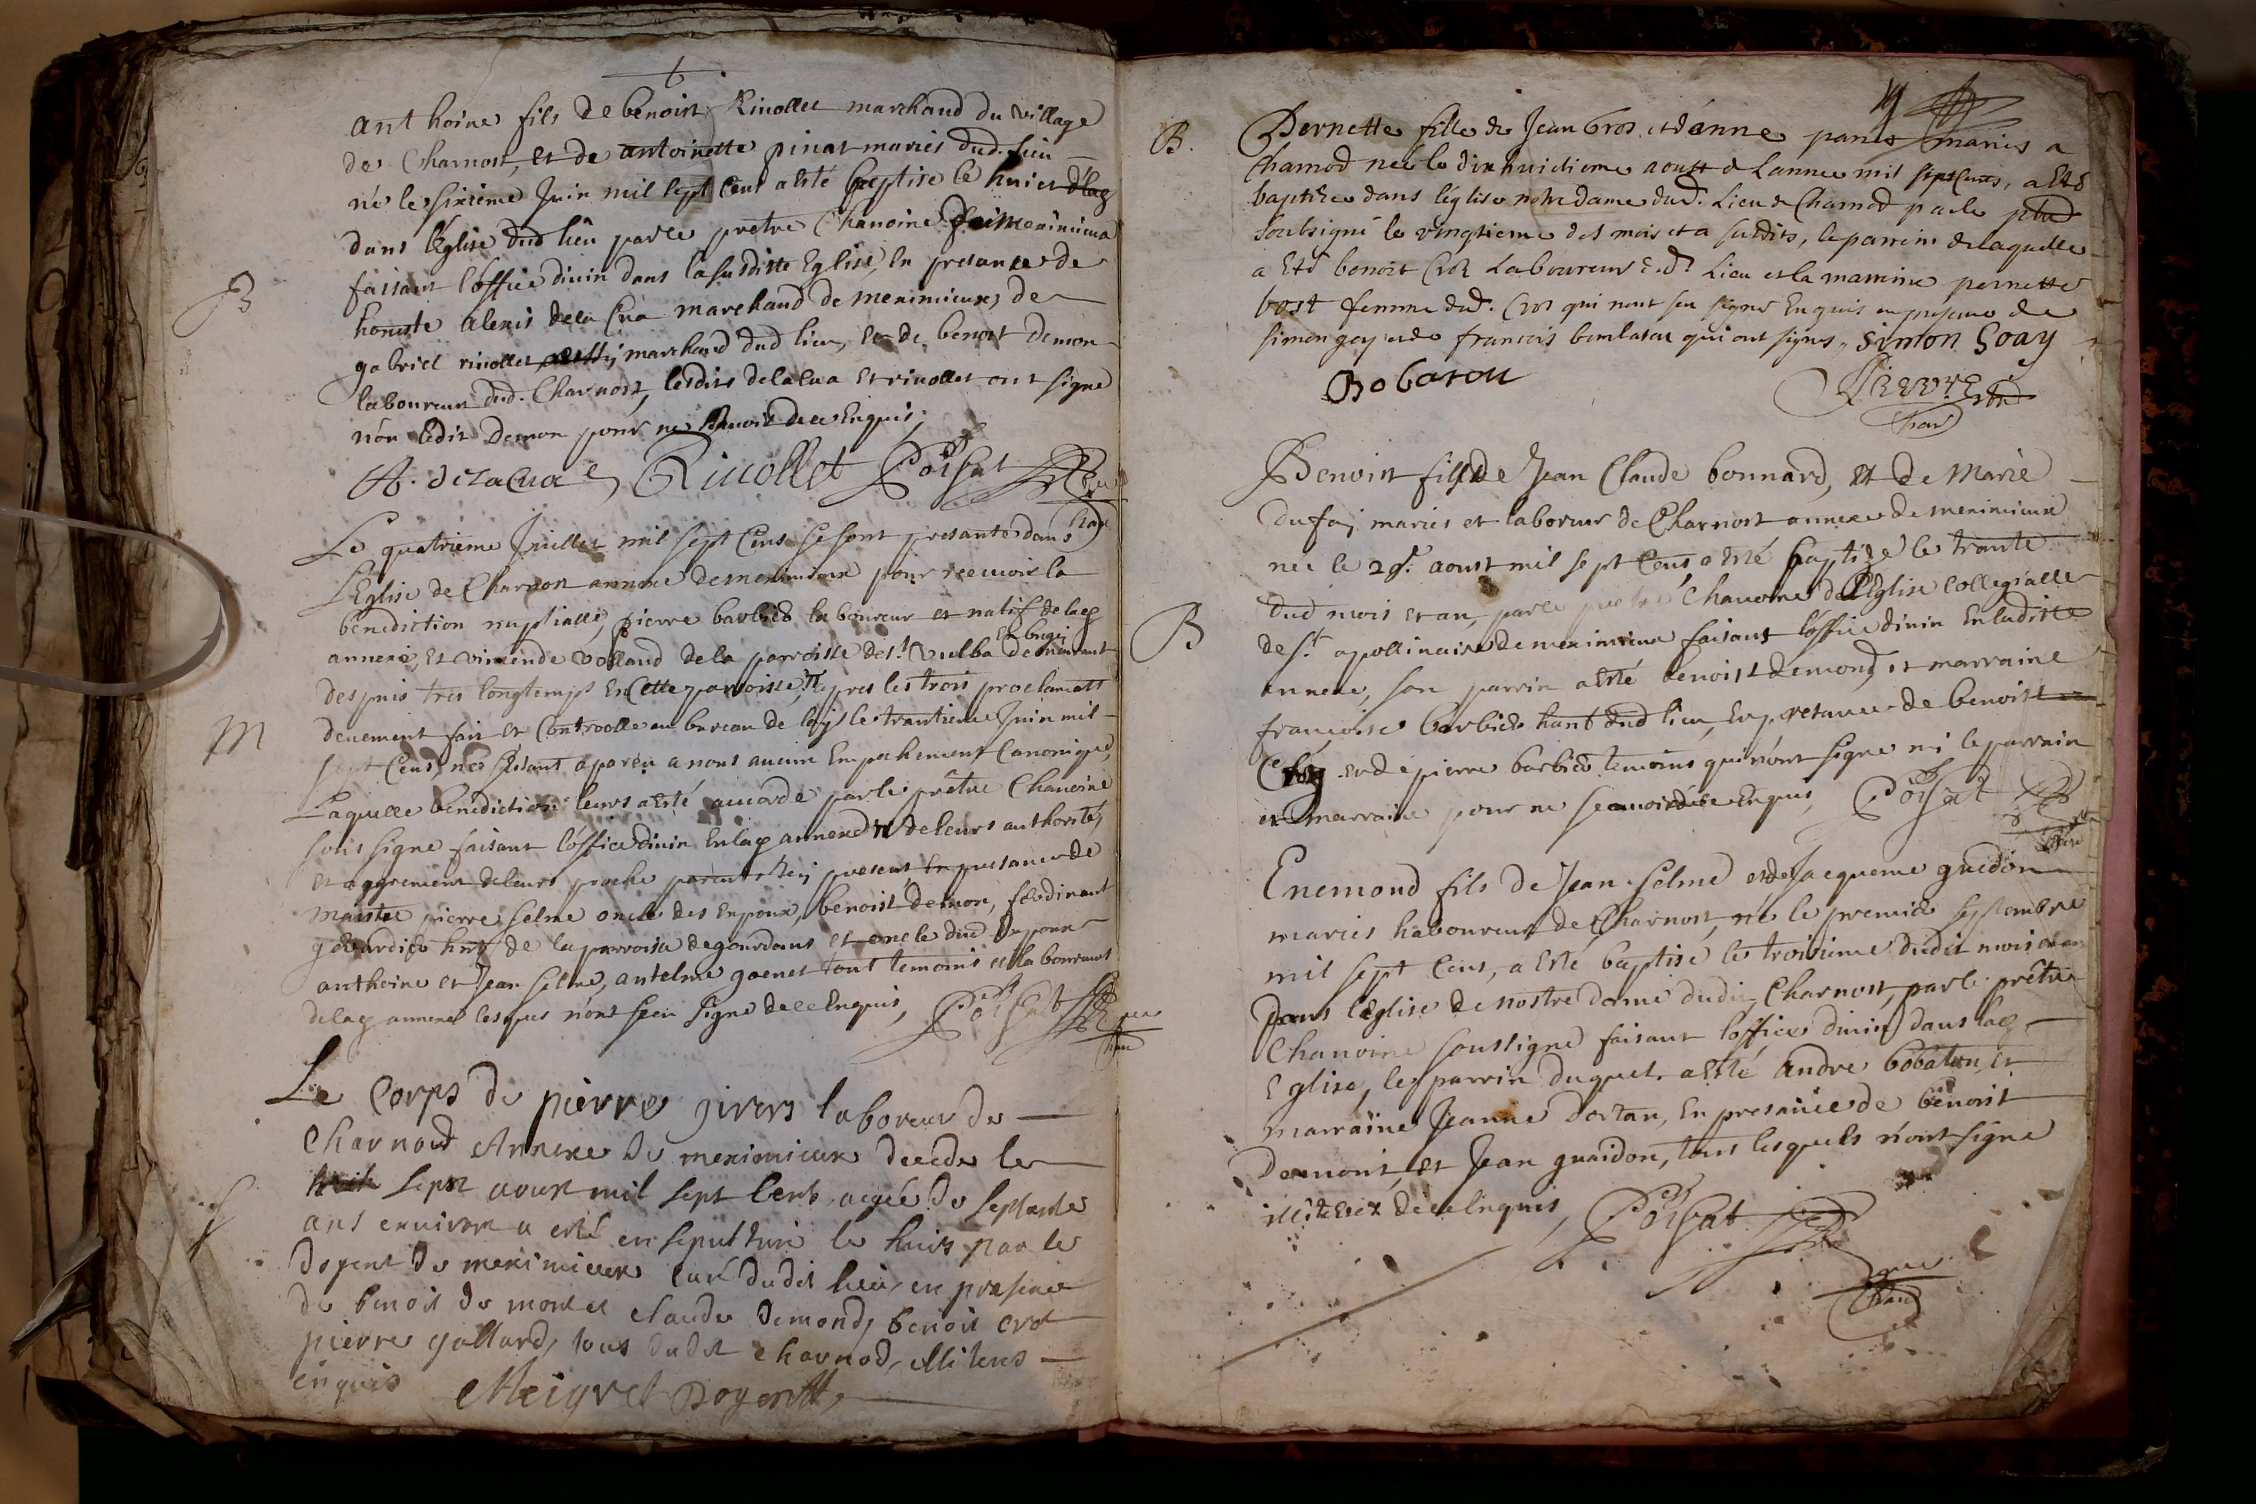 anthoine fils de benoist Rivollet marchand du village
de Charnost, et de antoinette pinat mariés dud. lieu
né le sixième Juin mil sept Cens a esté baptise le huict
dans l'Eglise dud lieu par le pretre Chanoine
faisant l'office divin dans la susditte Eglise, En presance de
honneste alexis dela Cua marchand de meximieux, de
gabriel rivollet marchand dud lieu, et de benoist demon
laboureur dud. Charnost, lesdits delacua et rivollet ont signé
non ledit Demon pour ne scavoir de ce Enquis,
A. delaCua Rivollet Poissat
B
Le quatrieme Juillet mil sept Cens se sont presanté dans
L'Eglise de Charnost annexe de meximieux pour recevoir la
benediction nuptialle, pierre barbier laboureur et natif de lad
annexe, et volland de la parroisse de St. Vulba En bugei demeurant
despuis tres longtemps En Cette parroisse, apres les trois proclamatt
deuement fait et Controolle au bureau de le trantieme Juin mil
sept Cens, ne s'estant aparëu a nous aucun Empechement Canonique,
Laquelle benediction leurs a esté accordé par le prêtre Chanoine
sous signé faisant l'office divin En lad annexe de leurs authorité,
et aggrement de leurs proche parents presens, En presance de
maistre pierre selme oncle des Enpoux, benoist demon, ferdinant
de la parroisse de gourdans et oncle dud Enpoux
anthoine et Jean selme, antelme goenet tout temoins et laboureurs
de lad annexe lesques n'ont sceu signé de ce Enquis, Poissat
M
Le Corps de pierre givers laboreur de
Charnoud Annexe de meximieux decede le
sept aoust mil sept Cent, agée de septante
ans environ a esté en sepulture le huit par le
doyent de meximieux Curé dudit lieu, en presence
de benoit de mont et claude demond, benoit crot
pierre gallard, tous dudit charnod, illiteres
enquis Meigret Doyent
S
19
B.
Pernette fille de Jean Cros et d'anne mariés a
Charnod née le dixhuictieme aoust de L'annee mil sept cents, a Eté
baptisee dans l'église notre dame dud. Lieu de Charnod par le
soubsigné le vingtieme des mois et a susdits, le parrein de laquelle
a Eté benoit Cros Laboureur d. Lieu et la marreine pernette
bost femme dud. Cros qui n'ont seu signer Enquis en presence de
simon goy et de francois bonbatou qui ont signes, Simon Goay
Bobatou
Lievre
Benoist fils de Jean Claude bonnard, et de Marie
dufaj mariés et laboreur de Charnost annexe de meximieux
né le 29. aoust mil sept Cens a esté baptize le trante
dud mois et an, par le pretre Chanoine de L'Eglise collegialle
de St. apollinaire de meximieux faisant l'office divin En laditte
annexe, son parrin a esté benoist demond, et marraine
francoise barbier dud lieu, En presance de benoist
et de pierre barbier temoins qui n'ont signe ni le parrain
et marraine pour ne scavoir de ce Enquis, Poissat
B
Enemond fils de Jean Selme et de Jacqueme guedon
mariés laboureur de Charnost, né le premier septembre
mil sept Cens, a esté baptisé le troisieme dudit mois et an
dans l'Eglise de nostre dame dudit Charnost, par le prêtre
Chanoine soussigné faisant l'office divin dans lad
Eglise, le parrin duquel a esté andre bobaton, et
marraine Jeanne dortan, En presance de benoist
demont, et Jean guaidon, tous lesquels n'ont signé
de ce Enquis, Poissat